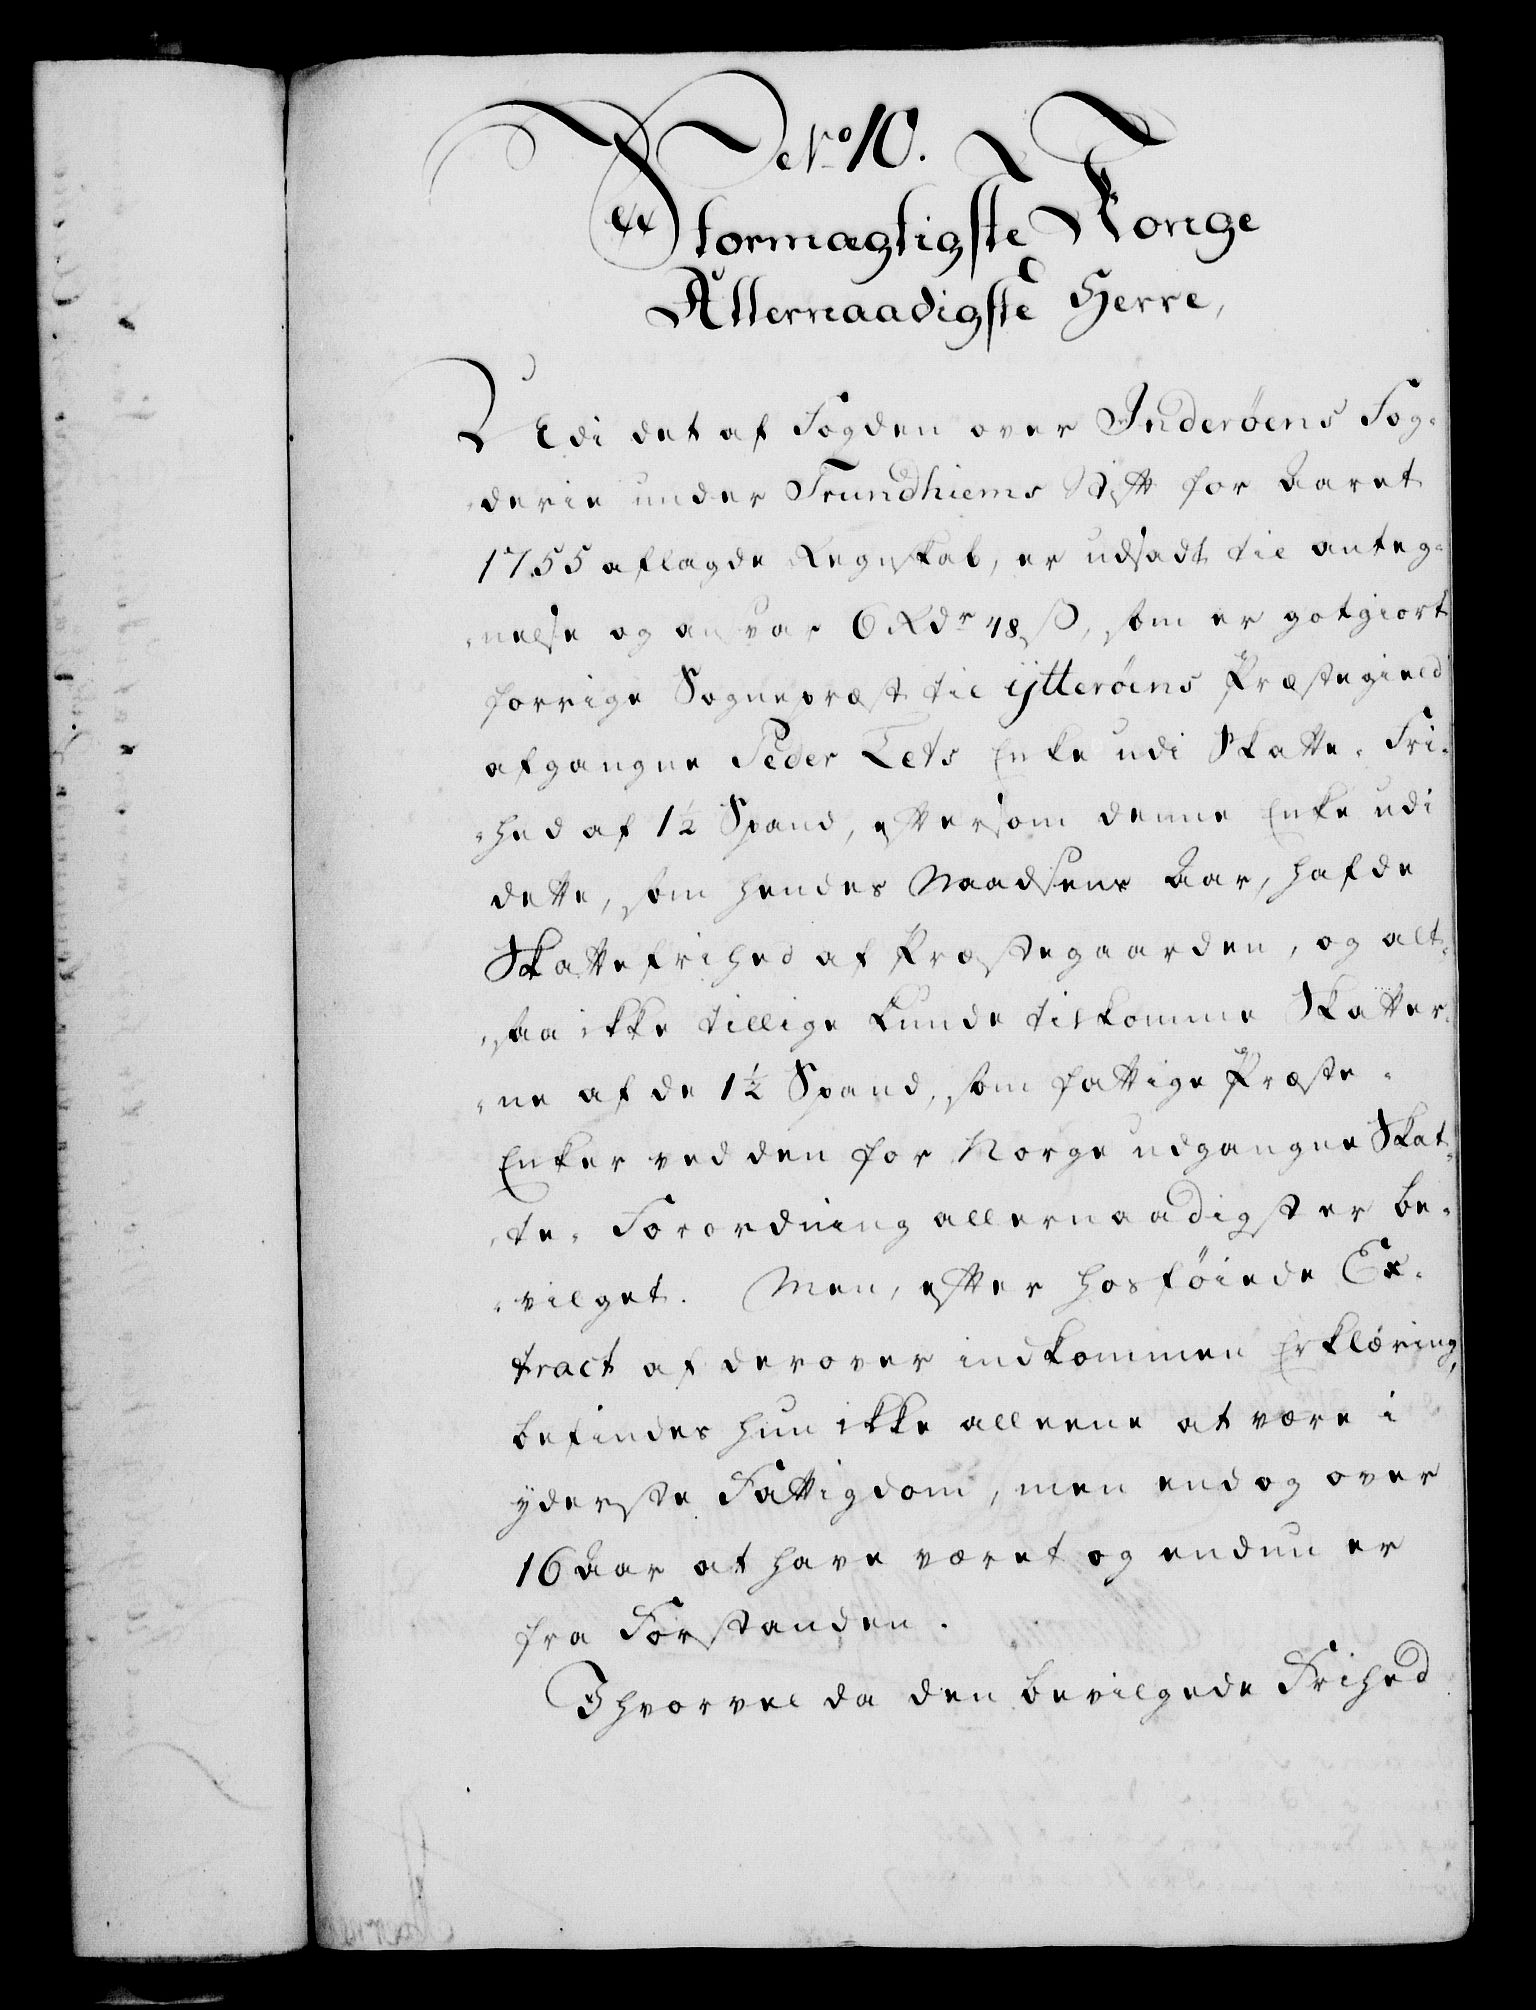 No. 10.
Stormægtigste Konge
Allernaadigste Herre,
Udi det af Fogden over Inderöens Fog-
-derie under Trundhiems Stift for Aaret
1755 aflagde Regnskab, er udsadt til anteg-
-nelse og ansvar 6 Rdr 48 ß, som er gotgiort
forrige Sognepræst til ÿtteröens Præstegield
afgangne Peder Tets Enke udi Skatte-Fri-
-hed af 1½ Spand, eftersom denne Enke udi
dette, som hendes Naadsens Aar, hafde
Skattefrihed af Præstegaarden, og alt-
-saa ikke tillige kunde tilkomme Skatter-
-ne af de 1½ Spand, som fattige Præste-
Enker ved den for Norge udgangne Skat-
-te-Forordning allernaadigst er be-
-vilget. Men, efter hosföiede Ex-
tract af derover indkommen Erklæring,
befindes hun ikke alleene at være i
ÿderste Fattigdom, men endog over
16 Aar at have været og endnu er
fra Forstanden.
Ihvorvel da den bevilgede Frihed